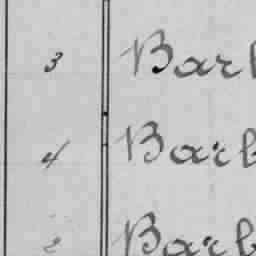 3 Barb
4 Barb
2 Barb